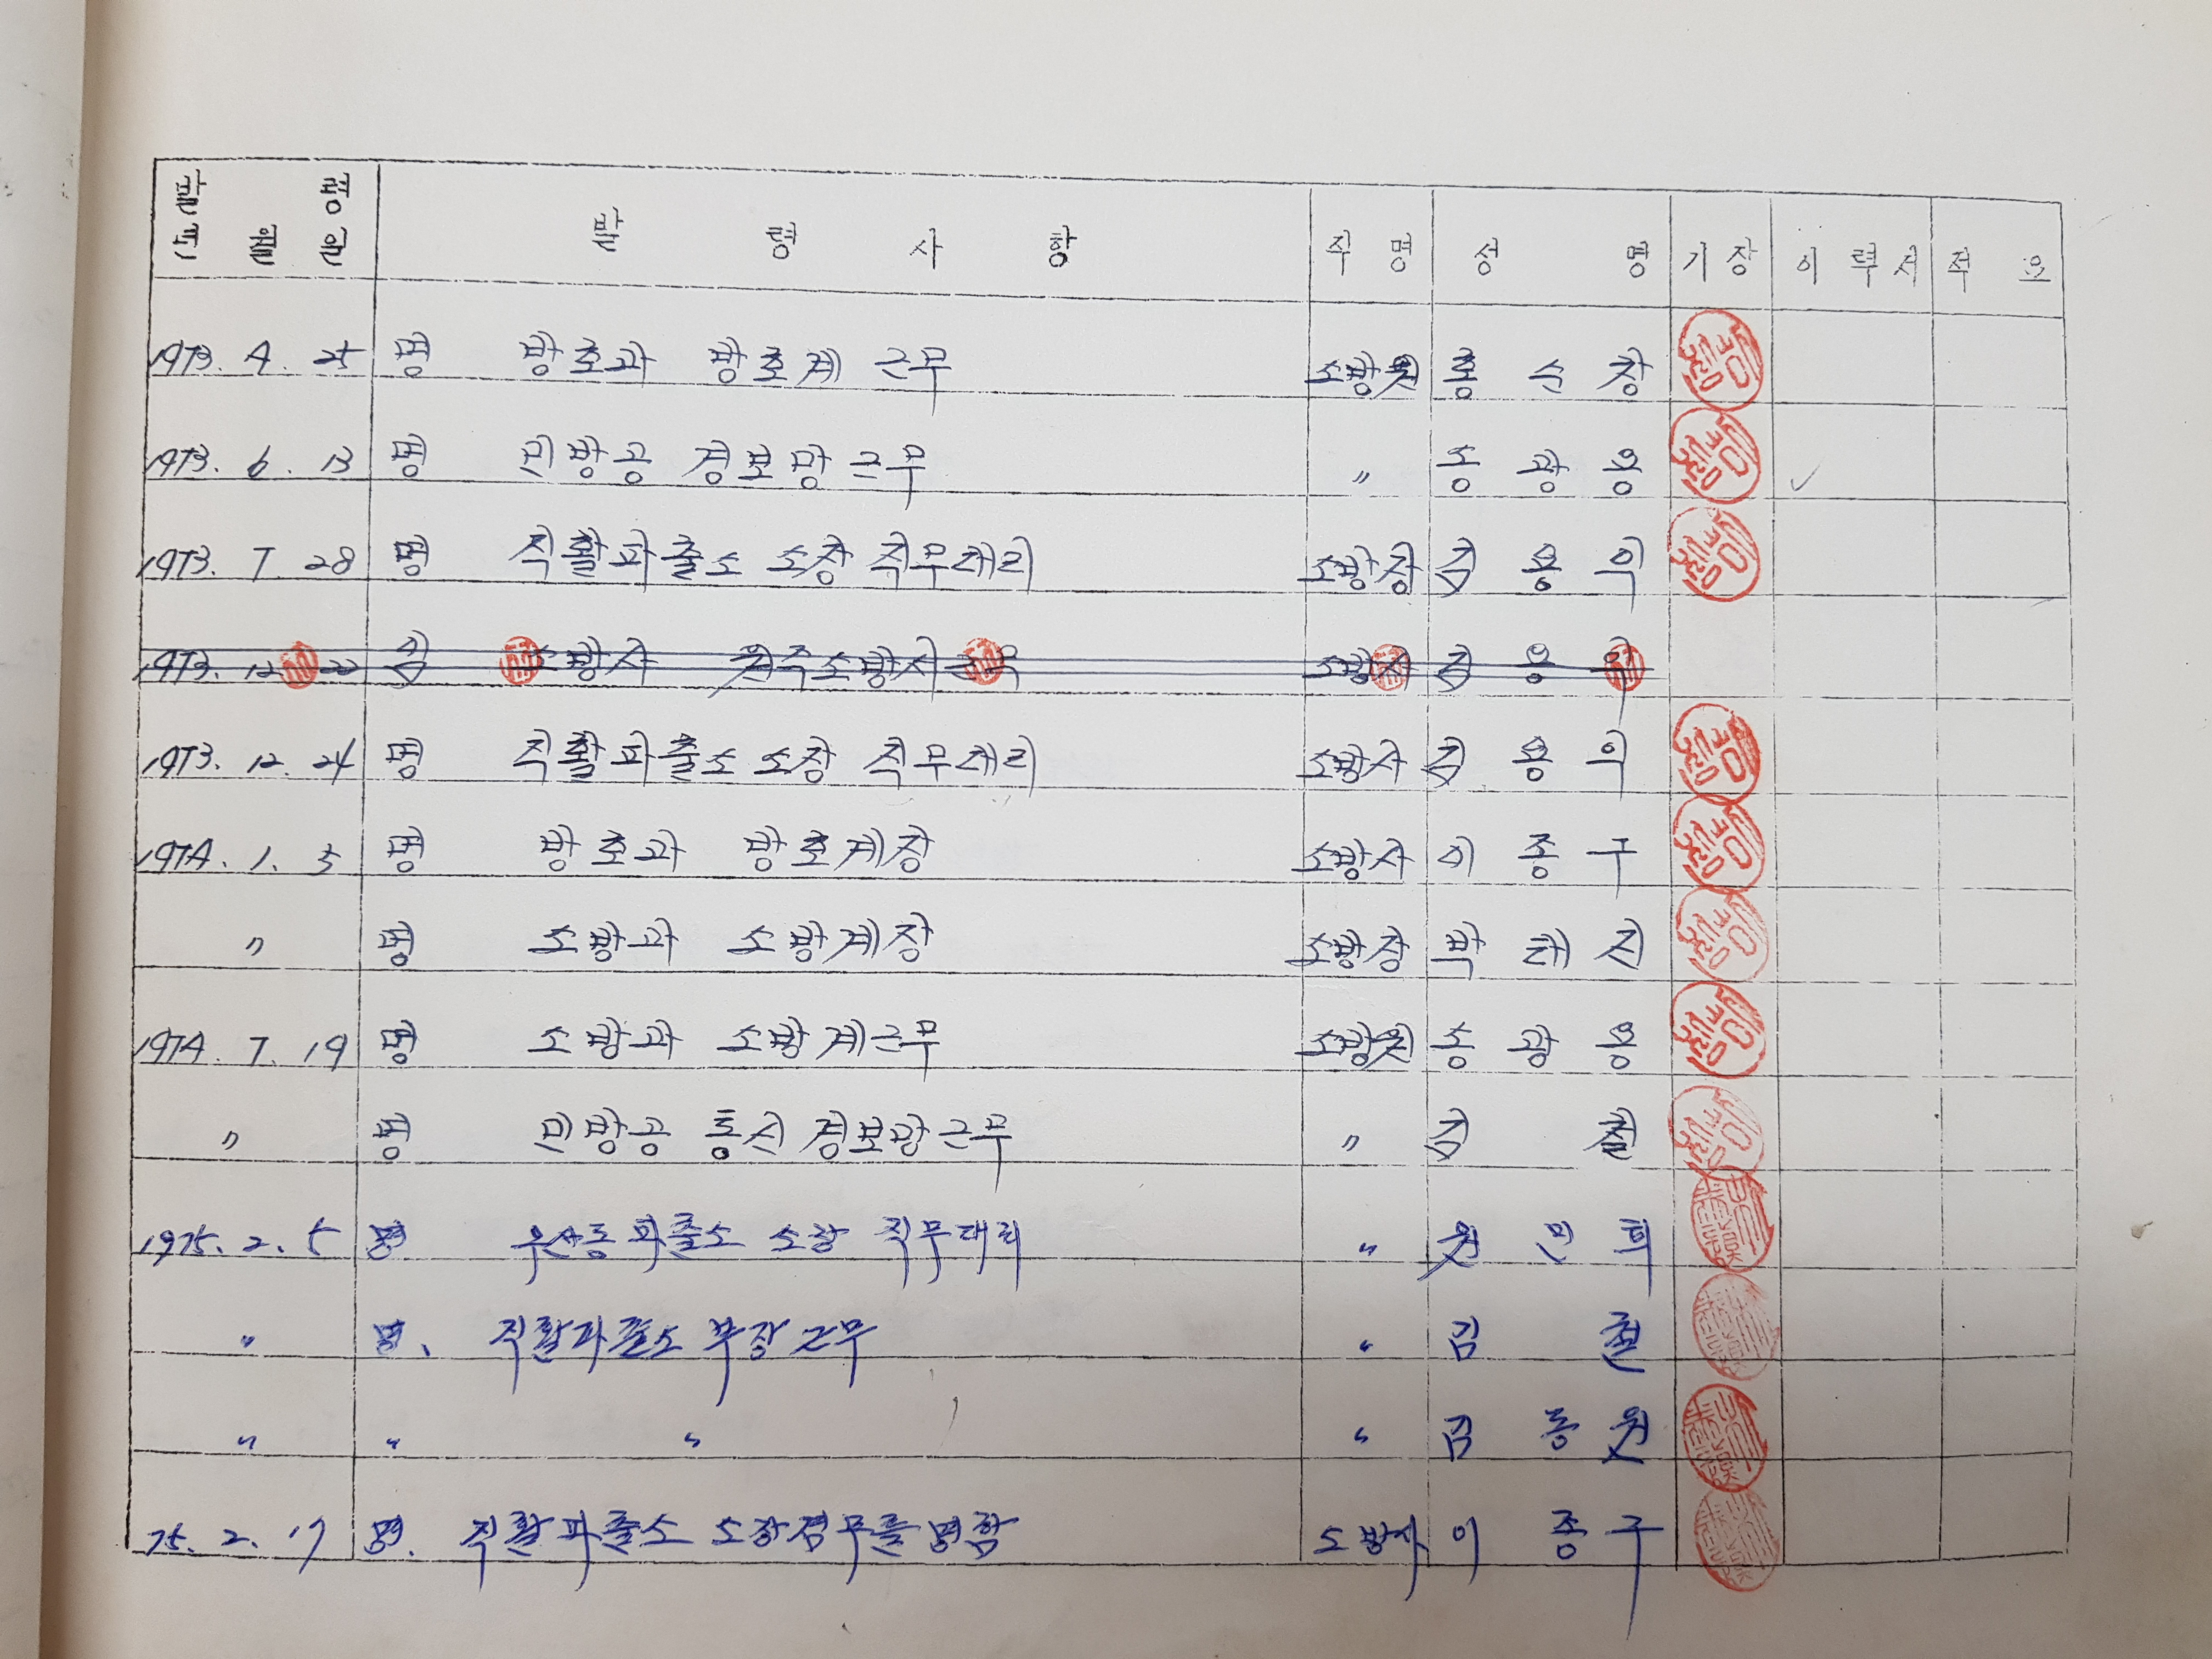 발령
년 월 일 발 령 사 항 직 명 성 명 기 장 이 력 서 적 요
1973. 4. 25 명 방호과 방호계 근무 소방원 홍 순 창
1973. 6. 13 명 민방공 경보망 근무 〃 송 광 용 ✓
1973. 7. 28 명 직활파출소 소장 직무대리 소방장 김 용 익
1973. 12. 22 승 소방사 원주소방서 근무 소방사 김 용 익
1973. 12. 24 명 직활파출소 소장 직무대리 소방사 김 용 익
1974. 1. 5 명 방호과 방호계장 소방사 이 종 구
〃 명 소방과 소방계장 소방장 박 태 진
1974. 7. 19 명 소방과 소방계근무 소방원 송 광 용
〃 명 민방공 통신 경보망근무 〃 김 철
1975. 2. 5 명 우산동파출소 소장 직무대리 〃 원 민 희
〃 명. 직활파출소 부장근무 〃 김 철
〃 〃 〃 〃 김 동 원
75. 2. 17 명. 직활파출소 소장겸무를 명함 소방사 이 종 구